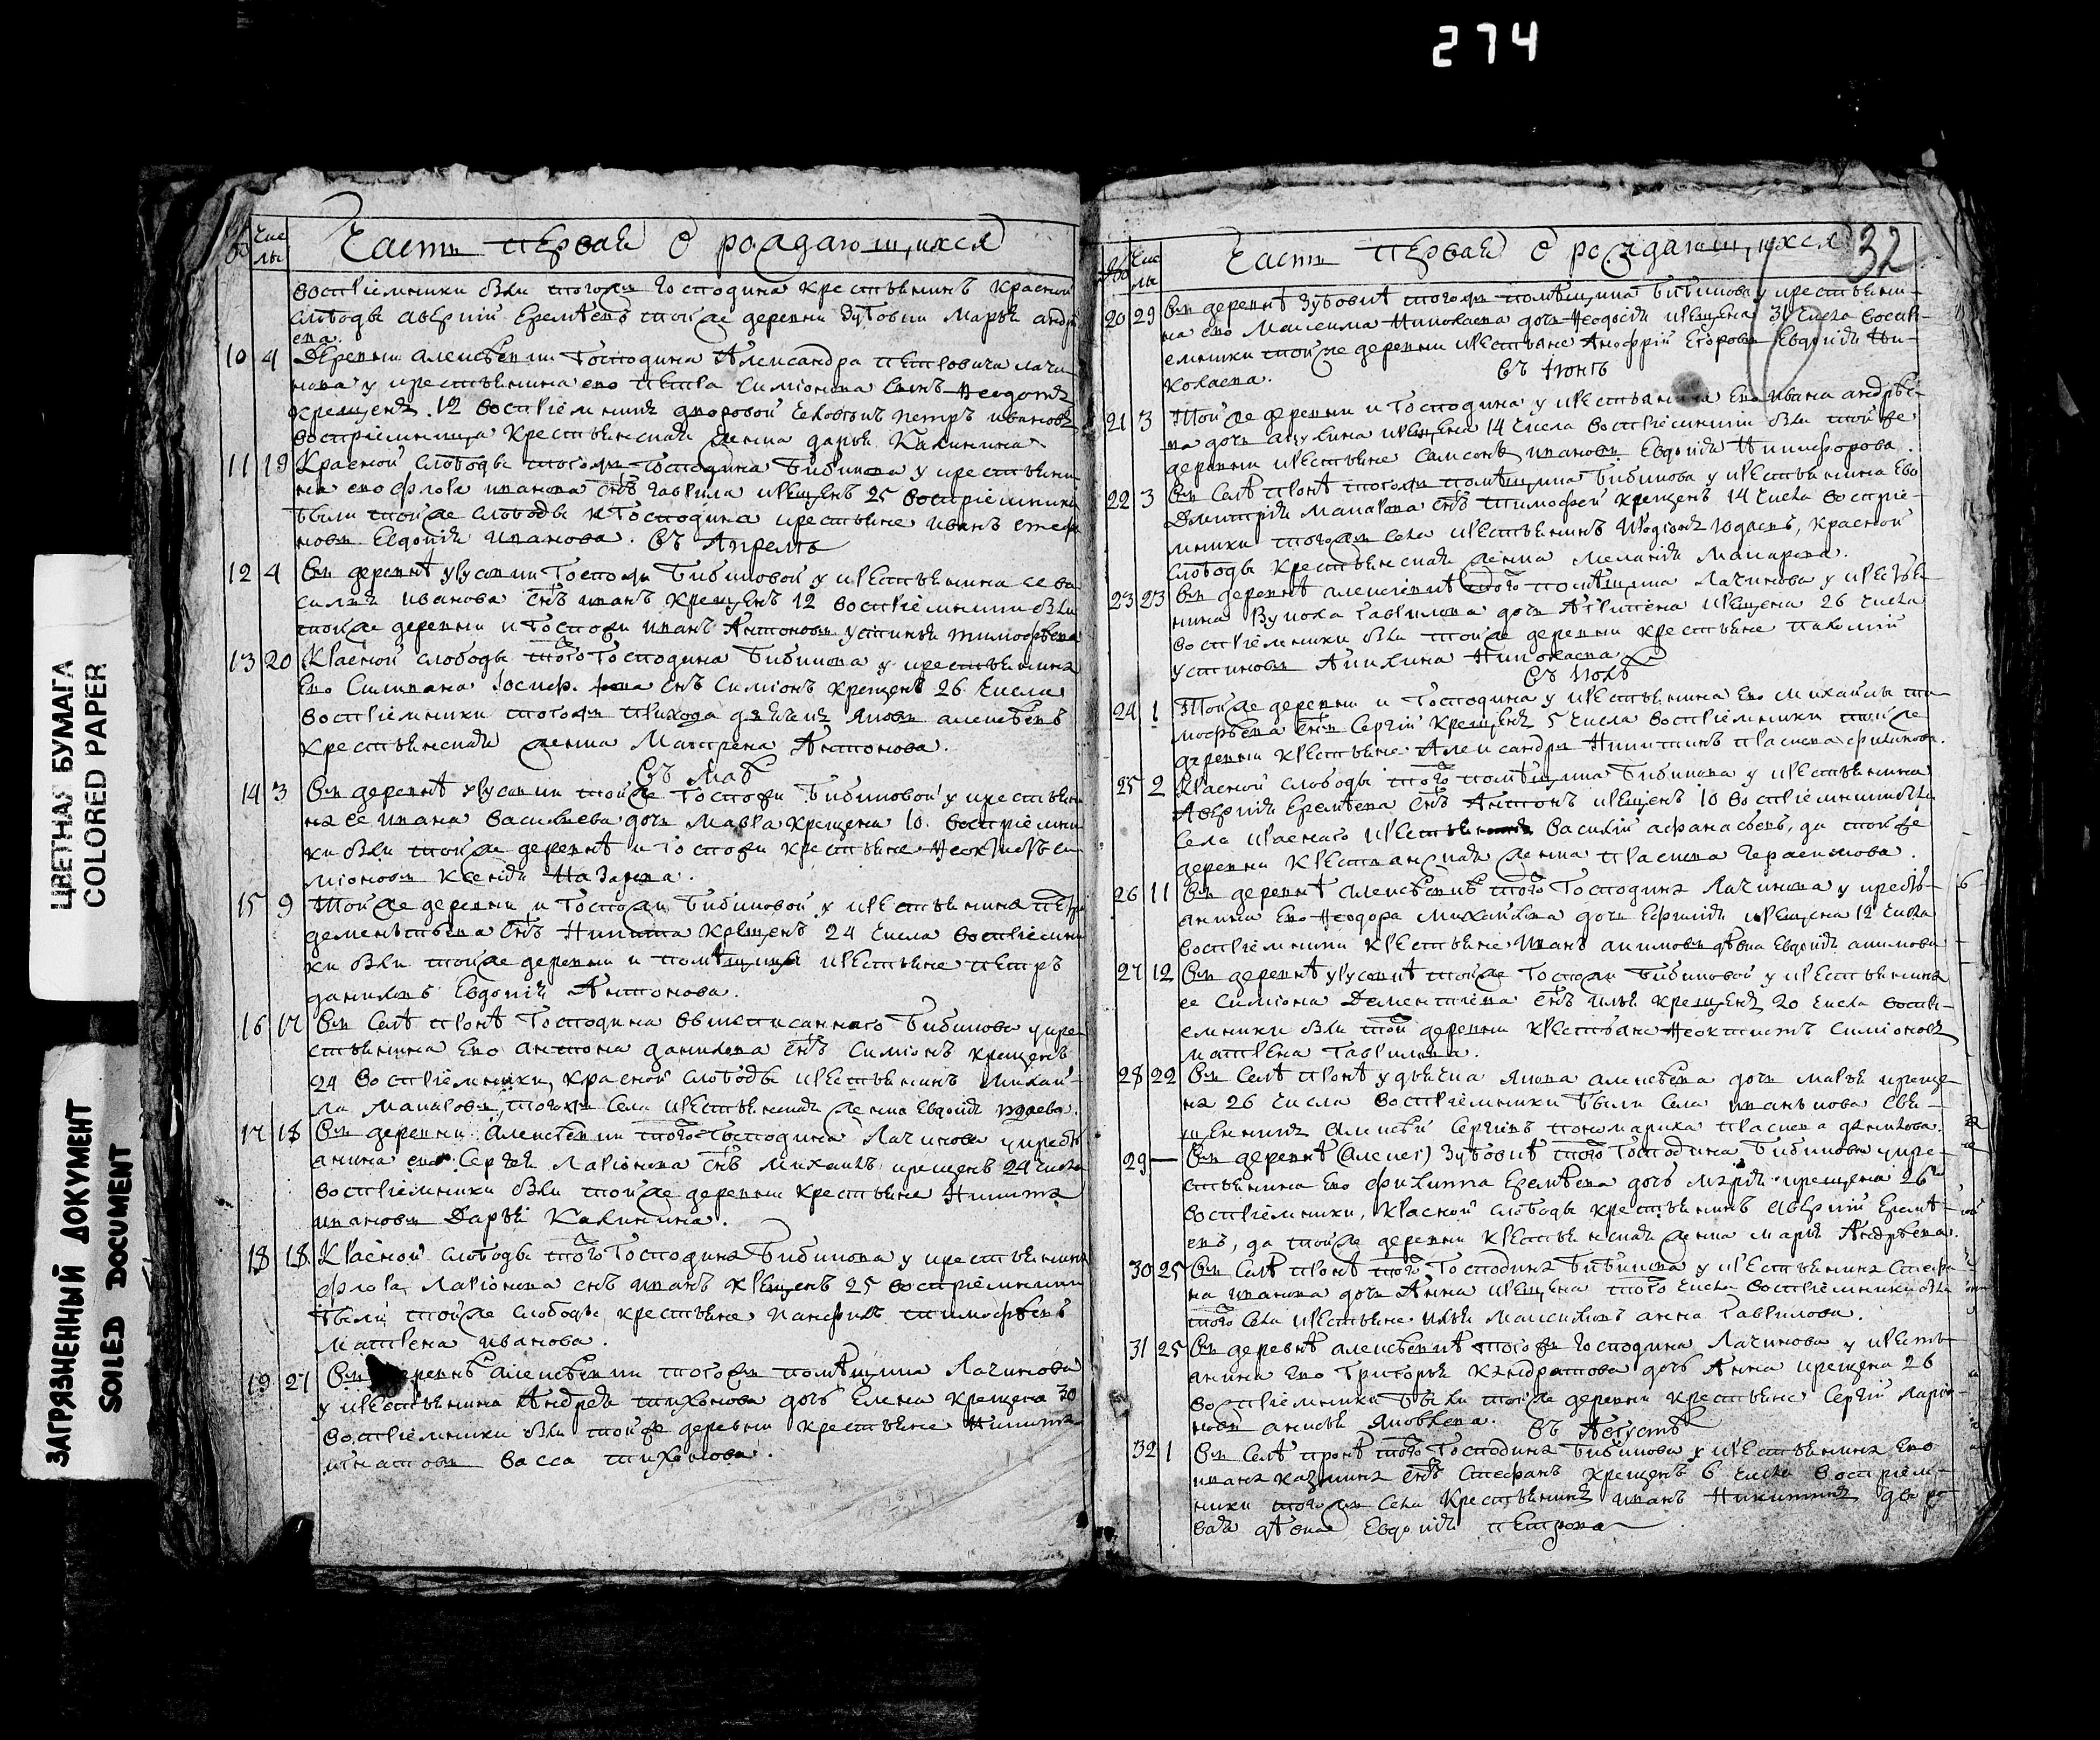 274
ЦВЕТНАЯ БУМАГА
COLORED PAPER
ЗАГРЯЗНЕННЫЙ ДОКУМЕНТ
SOILED DOCUMENT
Чис
лы
Часть первая о рождающихся
воспріемники были того жъ господина крестьянинъ красной
слободы Аверкій Еремѣевъ той же деревни Зубовки Марья Андре
ева.
10 4 Деревни Алексѣевки Господина Александра Петровича Лачи
нова у крестьянина ево Петра Симіонова сынъ Ѳеодотъ
крещенъ 12 воспріемникъ дворовой человѣкъ Петръ Ивановъ
воспріемница крестьянская женка Дарья Калинина
11 19 Красной слободы того жъ Господина Бибикова у крестьяни
на ево Флора Иванова снъ Гаврила крещенъ 25 воспріемники
были той же слободы и Господина крестьяне Иванъ
Евдокія Иванова. Въ Апрелѣ
12 4 Въ деревнѣ Госпожи Бибиковой у крестьянина ее Ва
силья Иванова снъ Иванъ крещенъ 12 воспріемники были
той же деревни и Госпожи Иванъ Антоновъ Устинья Тимофѣева
13 20 Красной слободы того Господина Бибикова у крестьянина
ево снъ Симіонъ крещенъ 26 числа
воспріемники того жъ прихода дьячекъ Яковъ Алексѣевъ
крестьянская женка Матрена Антонова.
Въ Маѣ
14 3 Въ деревнѣ той же Госпожи Бибиковой у крестьяни
на ее Ивана Васильева дочь Мавра крещена 10 воспріемни
ки были той же деревнѣ и Госпожи крестьяне Ѳеоктистъ Си
міоновъ Ксенія Назарова.
15 9 Той же деревни и Госпожи Бибиковой у крестьянина Петра
Дементьева снъ Никита крещенъ 24 числа воспріемни
ки были той же деревни и помѣщицы крестьяне Петръ
Даниловъ Евдокія Антонова.
16 17 Въ селѣ Пронѣ Господина вышеписаннаго Бибикова у кре
стьянина ево Антона Данилова снъ Симіонъ крещенъ
24 воспріемники, красной слободы крестьянинъ Михай
ла Макаровъ, того жъ села крестьянская женка Евдокія Юдаева.
17 18 Въ деревни Алексѣевки того Господина Лачинова у кресть
янина ево Сергѣя Ларіонова снъ Михаилъ крещенъ 24 числа
воспріемники были той же деревни крестьяне Никита
Ивановъ Дарья Калинина.
18 18 Красной слободы того Господина Бибикова у крестьянина
Флора Ларіонова снъ Иванъ крещенъ 25 воспріемники
были той же слободы крестьяне Панфилъ Тимофѣевъ
Матрена Иванова.
19 27 Въ деревнѣ Алексѣевки того жъ помѣщика Лачинова
у крестьянина Андрея Тихонова дочь Елена крещена 30
воспріемники были той же деревни крестьяне Никита
Игнатовъ Васса Тихонова.
Чис
лы
Часть первая о рождающихся 32
20 29 Въ деревнѣ Зубовкѣ того жъ помѣщика Бибикова у крестьяни
на ево Максима Николаева дочь Ѳеодосія крещена 31 числа воспрі
емники той же деревни крестьяне Анофрій Егоровъ Евдокія Ни
колаева.
Въ Іюнѣ
21 3 Той же деревни и Господина у крестьянина ево Ивана Андрѣе
ва дочь Акулина крещена 14 числа воспріемники были той же
деревни крестьяне Самсонъ Ивановъ Евдокія Никифорова.
22 3 Въ селѣ Пронѣ того жъ помѣщика Бибикова у крестьянина ево
Дмитрія Макарова снъ Тимофей крещенъ 14 числа воспріе
мники того жъ села крестьянинъ Иродіонъ Юдаевъ, красной
слободы крестьянская женка Меланія Макарова.
23 23 Въ деревнѣ Алексѣевкѣ того помѣщика Лачинова у крестья
нина Вукола Гаврилова дочь Агрипена крещена 26 числа
воспріемники были той же деревни крестьяне Пахомій
Устиновъ Акилина Николаева
Въ Іюлѣ
24 1 Той же деревни и Господина у крестьянина ево Михайлы Ти
мофѣева снъ Сергій крещенъ 5 числа воспріемники той же
деревни крестьяне Александръ Никитинъ Праскева Филипова.
25 2 Красной слободы того помѣщика Бибикова у крестьянина
Аверкія Еремѣева снъ Антонъ крещенъ 10 воспріемники были
села Краснаго крестьянинъ Василій Афанасьевъ, да той же
деревни крестьянская женка Праскева Герасимова.
26 11 Въ деревнѣ Алексѣевкѣ того Господина Лачинова у кресть
янина ево Ѳеодора Михайлова дочь Ефимія крещена 12 числа
воспріемники крестьяне Иванъ Акимовъ дѣвка Евдокія Акимова
27 12 Въ деревнѣ той же Госпожи Бибиковой у крестьянина
ее Симіона Дементіева снъ Илья крещенъ 20 числа воспрі
емники были той деревни крестьяне Ѳеоктистъ Симіоновъ
Матрена Гаврилова.
28 22 Въ селѣ Пронѣ у дьячка Якова Алексѣева дочь Марья креще
на 26 числа воспріемники были села Иванкова свя
щенникъ Алексѣй Сергѣевъ пономариха Праскева Данилова.
29 — Въ деревнѣ (Алексе) Зубовкѣ того Господина Бибикова у кре
стьянина ево Филиппа Еремѣева дочь Марія крещена 26
воспріемники, красной слободы крестьянинъ Аверкій Еремѣ
евъ, да той же деревни крестьянская женка Марья Андрѣева.
30 25 Въ селѣ Пронѣ того Господина Бибикова у крестьянина Стефа
на Иванова дочь Анна крещена того числа воспріемники были
того села крестьяне Илья Максимовъ Анна Гаврилова.
31 25 Въ деревнѣ Алексѣевкѣ того жъ Господина Лачинова у кресть
янина ево Григорья Кандратова дочь Анна крещена 26
воспріемники были той же деревни крестьяне Сергій Ларіо
новъ Анисья Яковлева.
Въ Августѣ
32 1 Въ селѣ Пронѣ того Господина Бибикова у крестьянина ево
Ивана Казмина снъ Стефанъ крещенъ 6 числа воспріем
ники того жъ села крестьянинъ Иванъ Никитинъ дворо
вая дѣвка Евдокія Петрова